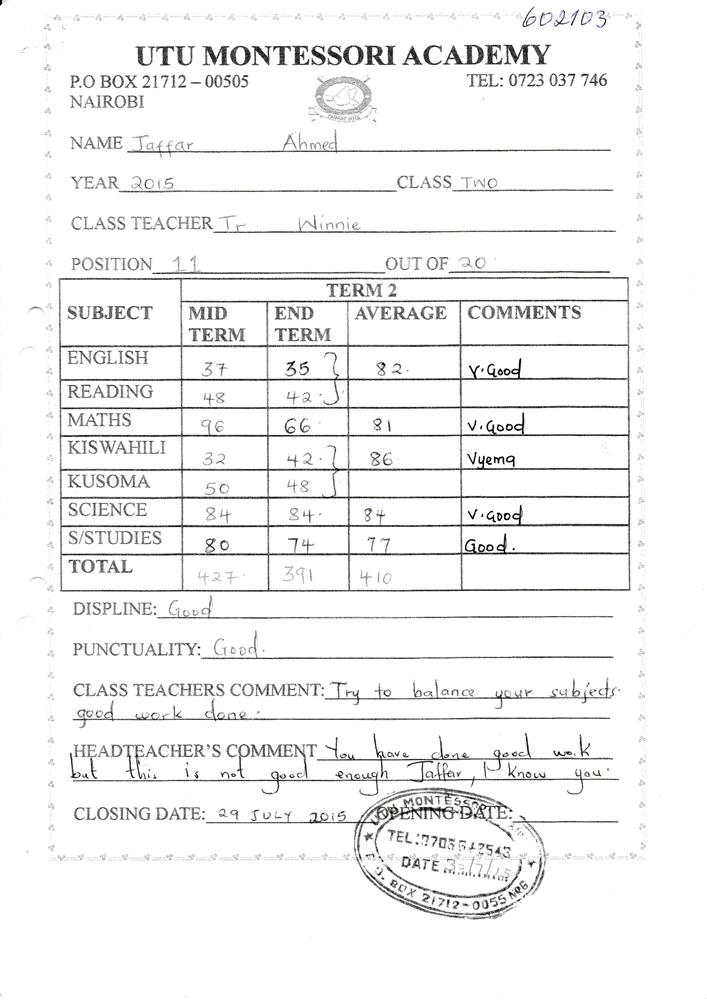 602103
UTU MONTESSORI ACADEMY
P.O BOX 21712 – 00505 TEL: 0723 037 746
NAIROBI
NAME Jaffar Ahmed
YEAR 2015 CLASS TWO
CLASS TEACHER Tr Winnie
POSITION 11 OUT OF 20
TERM 2
SUBJECT MID TERM END TERM AVERAGE COMMENTS
ENGLISH 37 35 82. V.Good
READING 48 42.
MATHS 96 66 81 V.Good
KISWAHILI 32 42. 86 Vyema
KUSOMA 50 48
SCIENCE 84 84. 84 V.Good
S/STUDIES 80 74 77 Good.
TOTAL 427. 391 410
DISPLINE: Good
PUNCTUALITY: Good.
CLASS TEACHERS COMMENT: Try to balance your subjects.
good work done.
HEADTEACHER'S COMMENT You have done good work
but this is not good enough Jaffar, I know you.
CLOSING DATE: 29 JULY 2015 OPENING DATE:
UTU MONTESSORI
TEL:
DATE
P.O. BOX 21712-0055 NRB